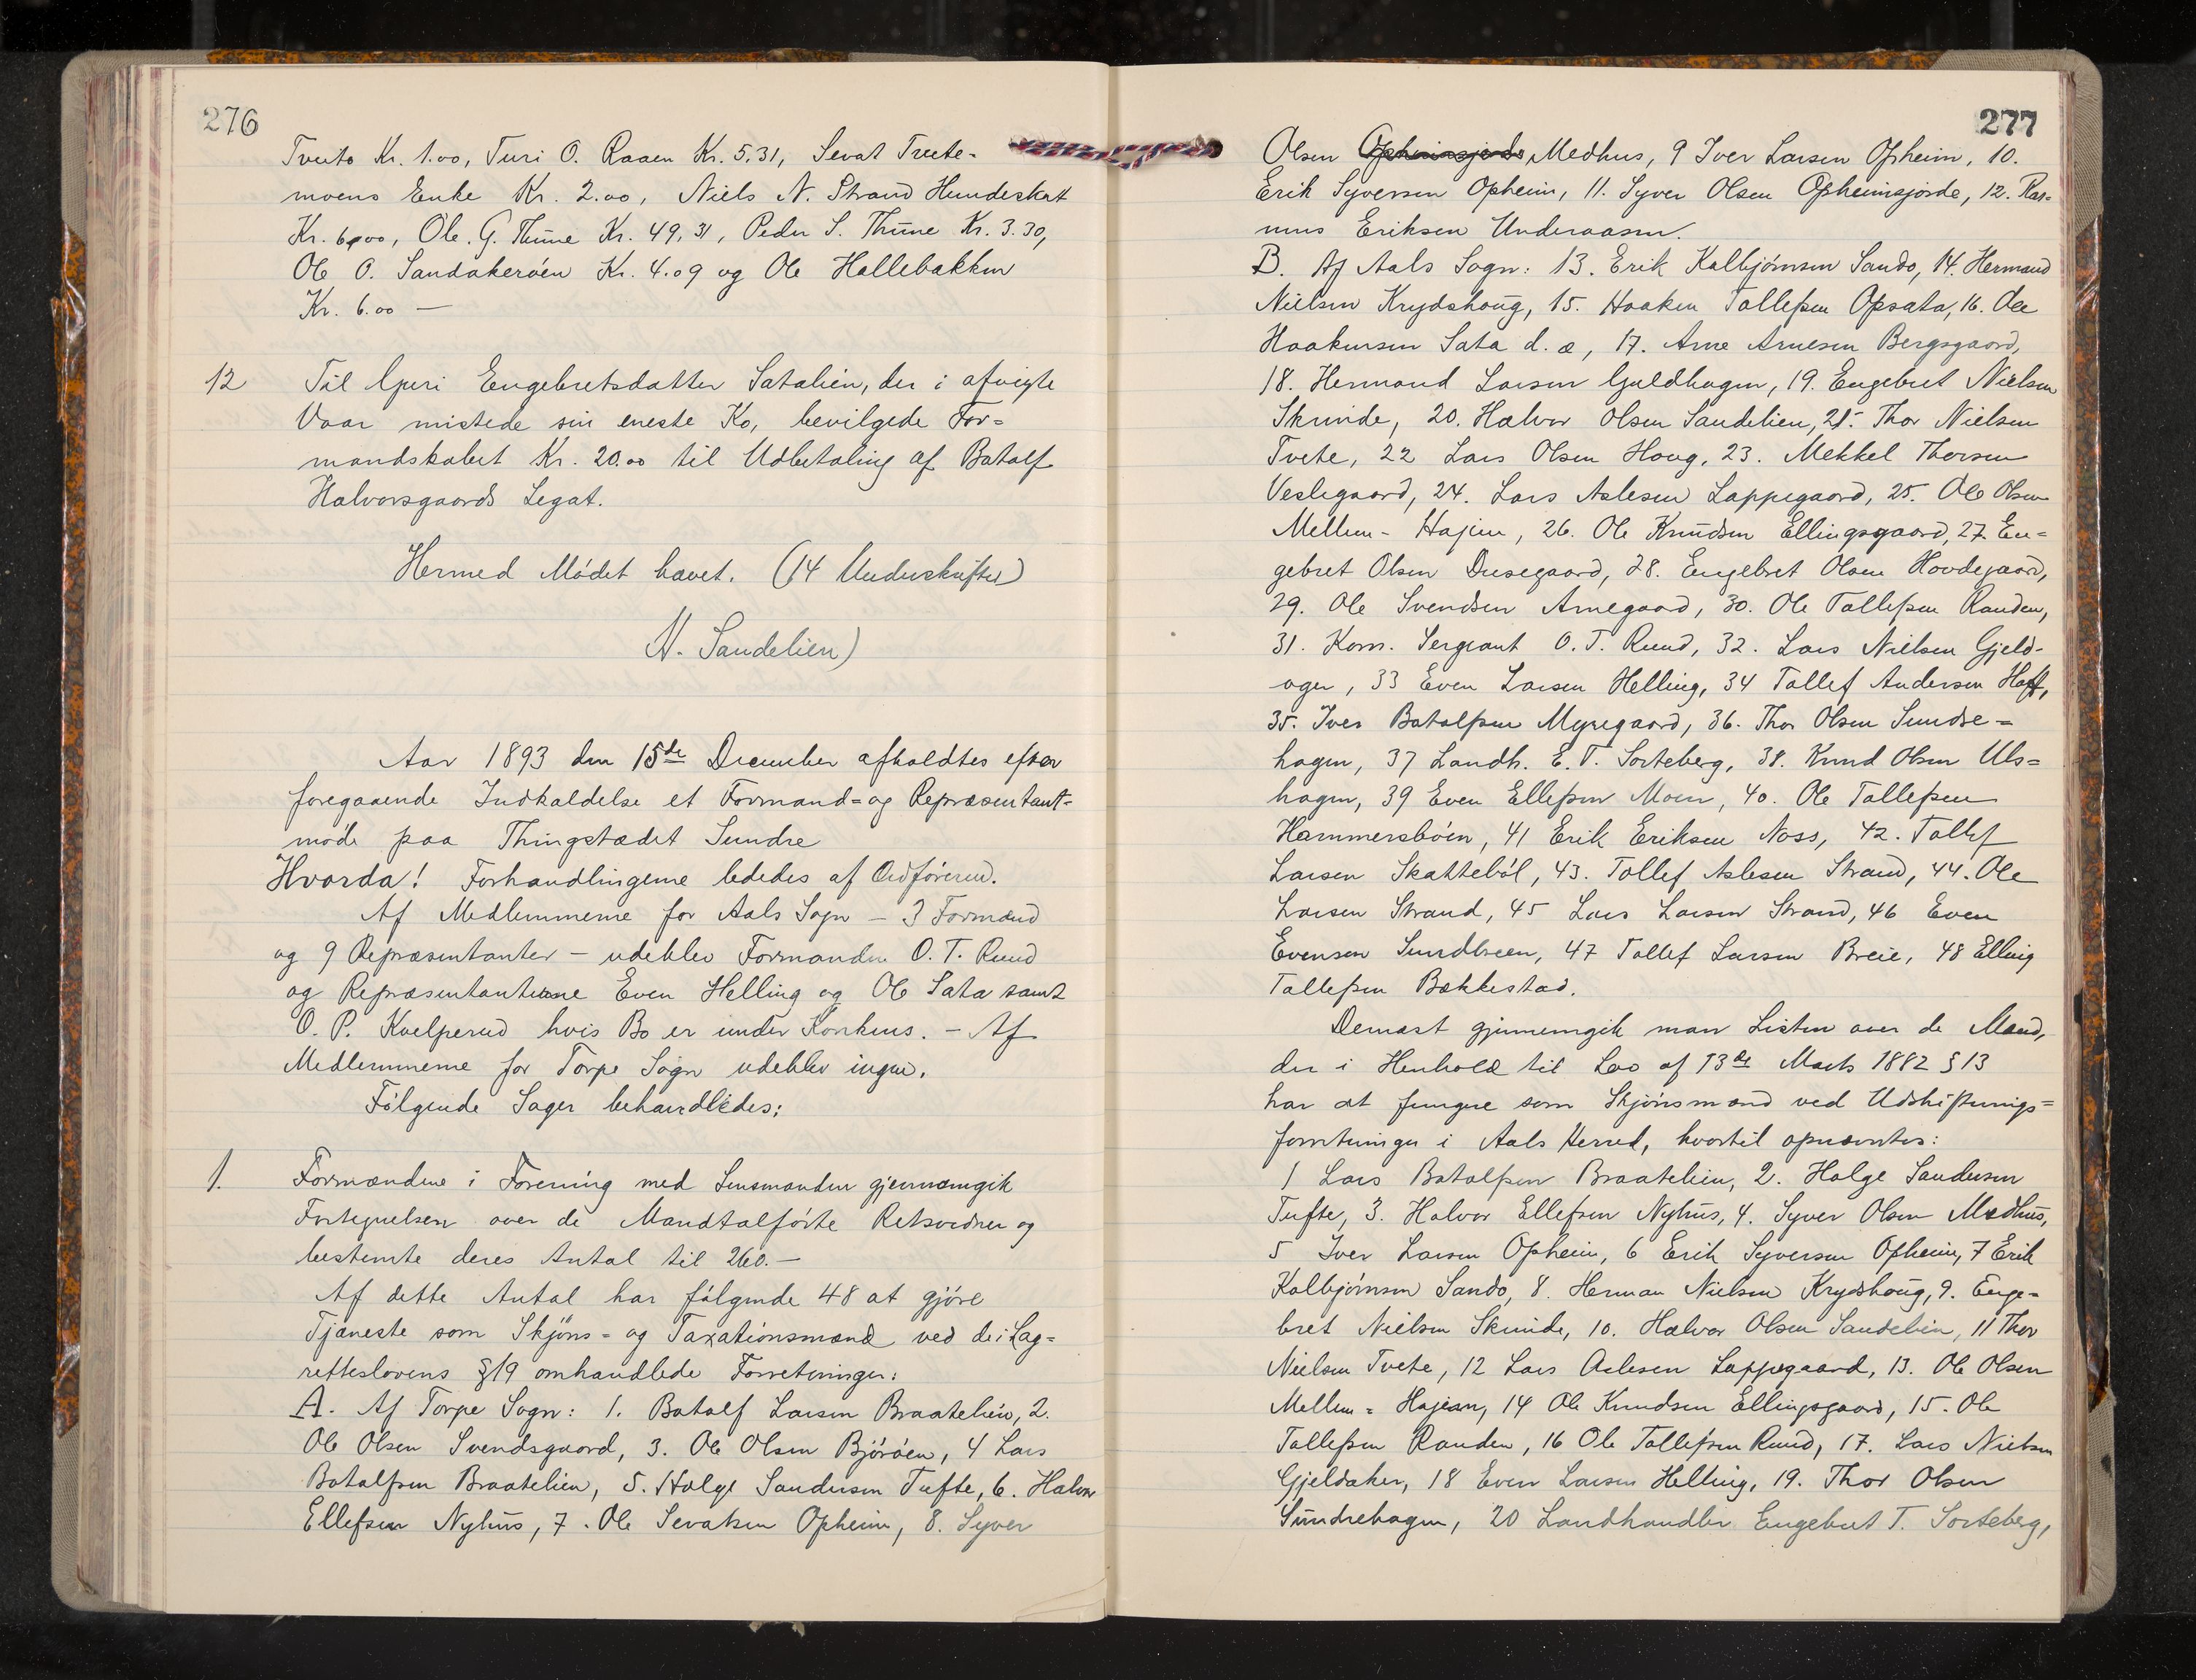 276
Tveito Kr. 1.00, Turi O. Raaen Kr. 5.31, Sevat Tveite-
moens Enke Kr. 2.00, Niels N. Strand Hundeskat
Kr. 6,00, Ole. G. Thune Kr. 49,31, Peder S. Thune Kr. 3.30,
Ole O. Sandakerøen Kr. 4.09 og Ole Hallebakken
Kr. 6.00 —
12 Til Guri Engebretsdatter Satalien, der i afvigte
Vaar mistede sin eneste Ko, bevilgede For=
mandskabet Kr. 20.00 til Udbetaling af Botolf
Halvorsgaards Legat.
Hermed Mødet hævet. (14 Underskrifter)
N. Sandelien)
Aar 1893 den 15de December afholdtes efter
foregaaende Indkaldelse et Formand= og Repræsentant=
møde paa Thingstedet Sundre
Hvorda! Forhandlingerne lededes af Ordføreren.
Af Medlemmerne for Aals Sogn – 3 Formænd
og 9 Repræsentanter – udeblev Formanden O. T. Ruud
og Repræsentanterne Even Helling og Ole Sata samt
O. P. Kvelprud hvis Bo er under Konkurs. – Af
Medlemmerne for Torpe Sogn udeblev ingen.
Følgende Sager behandledes:
1. Formændene i Forening med Lensmanden gjennemgik
Fortegnelsen over de Mandtalførte Retsvidner og
bestemte deres Antal til 260.–
Af dette Antal har følgende 48 at gjøre
Tjeneste som Skjøns= og Taxationsmænd ved de i Lag=
retteslovens §19 omhandlede Forretninger:
A. Af Torpe Sogn: 1. Botolf Larsen Braatelien, 2.
Ole Olsen Svendsgaard, 3. Ole Olsen Bjørøen, 4 Lars
Botolfsen Braatelien, 5. Holge Sandersen Tufte, 6. Halvor
Ellefsen Nyhus, 7. Ole Sevatsen Opheim, 8. Syver
277
Olsen Opheimsjorde Medhus, 9 Iver Larsen Opheim, 10.
Erik Syversen Opheim, 11. Syver Olsen Opheimsjorde, 12. Ras=
mus Eriksen Underaasen.
B. Af Aals Sogn: 13. Erik Kolbjørnsen Sando, 14. Hermand
Nielsen Krydshoug, 15. Haaken Tollefsen Opsata, 16. Ole
Haakensen Sata d. æ, 17. Arne Arnesen Bergsgaard,
18. Hermand Larsen Guldhagen, 19. Engebret Nielsen
Skrinde, 20. Halvor Olsen Sandelien, 21. Thor Nielsen
Tvete, 22 Lars Olsen Houg, 23. Mekkel Thorsen
Veslegaard, 24. Lars Aslesen Lappegaard, 25. Ole Olsen
Mellem- Hajen, 26. Ole Knudsen Ellingsgaard, 27. En=
gebret Olsen Dusegaard, 28. Engebret Olsen Hovdegaard,
29. Ole Svendsen Arnegaard, 30. Ole Tollefsen Randen,
31. Kom. Sergeant O. T. Ruud, 32. Lars Nielsen Gjeld-
ager, 33 Even Larsen Helling, 34 Tollef Andersen Hoff,
35. Iver Botolfsen Myregaard, 36. Thor Olsen Sundre=
hagen, 37 Landh. E. T. Sorteberg, 38. Knud Olsen Uls=
hagen, 39 Even Ellefsen Moen, 40. Ole Tollefsen
Hammersbøen, 41 Erik Eriksen Noss, 42. Tollef
Larsen Skattebøl, 43. Tollef Aslesen Strand, 44. Ole
Larsen Strand, 45 Lars Larsen Strand, 46 Even
Evensen Sundbreen, 47 Tollef Larsen Breie, 48 Elling
Tollefsen Bækkestad.
Dernæst gjennemgik man Listen over de Mænd,
der i Henhold til Lov af 13de Marts 1882 §13
har at fungere som Skjønsmænd ved Udskiftnings=
forretninger i Aals Herred, hvortil opnævntes:
1 Lars Botolfsen Braatelien, 2. Holge Sandersen
Tufte, 3. Halvor Ellefsen Nyhus, 4. Syver Olsen Medhus,
5 Iver Larsen Opheim, 6 Erik Syversen Opheim, 7 Erik
Kolbjørnsen Sando, 8. Herman Nielsen Krydshoug, 9. Enge=
bret Nielsen Skrinde, 10. Halvor Olsen Sandelien, 11 Thor
Nielsen Tvete, 12 Lars Aslesen Lappegaard, 13. Ole Olsen
Mellem= Hajen, 14 Ole Knudsen Ellingsgaard, 15. Ole
Tollefsen Randen, 16 Ole Tollefsen Ruud, 17. Lars Nielsen
Gjeldaker, 18 Even Larsen Helling, 19. Thor Olsen
Sundrehagen, 20 Landhandler Engebret T. Sorteberg,